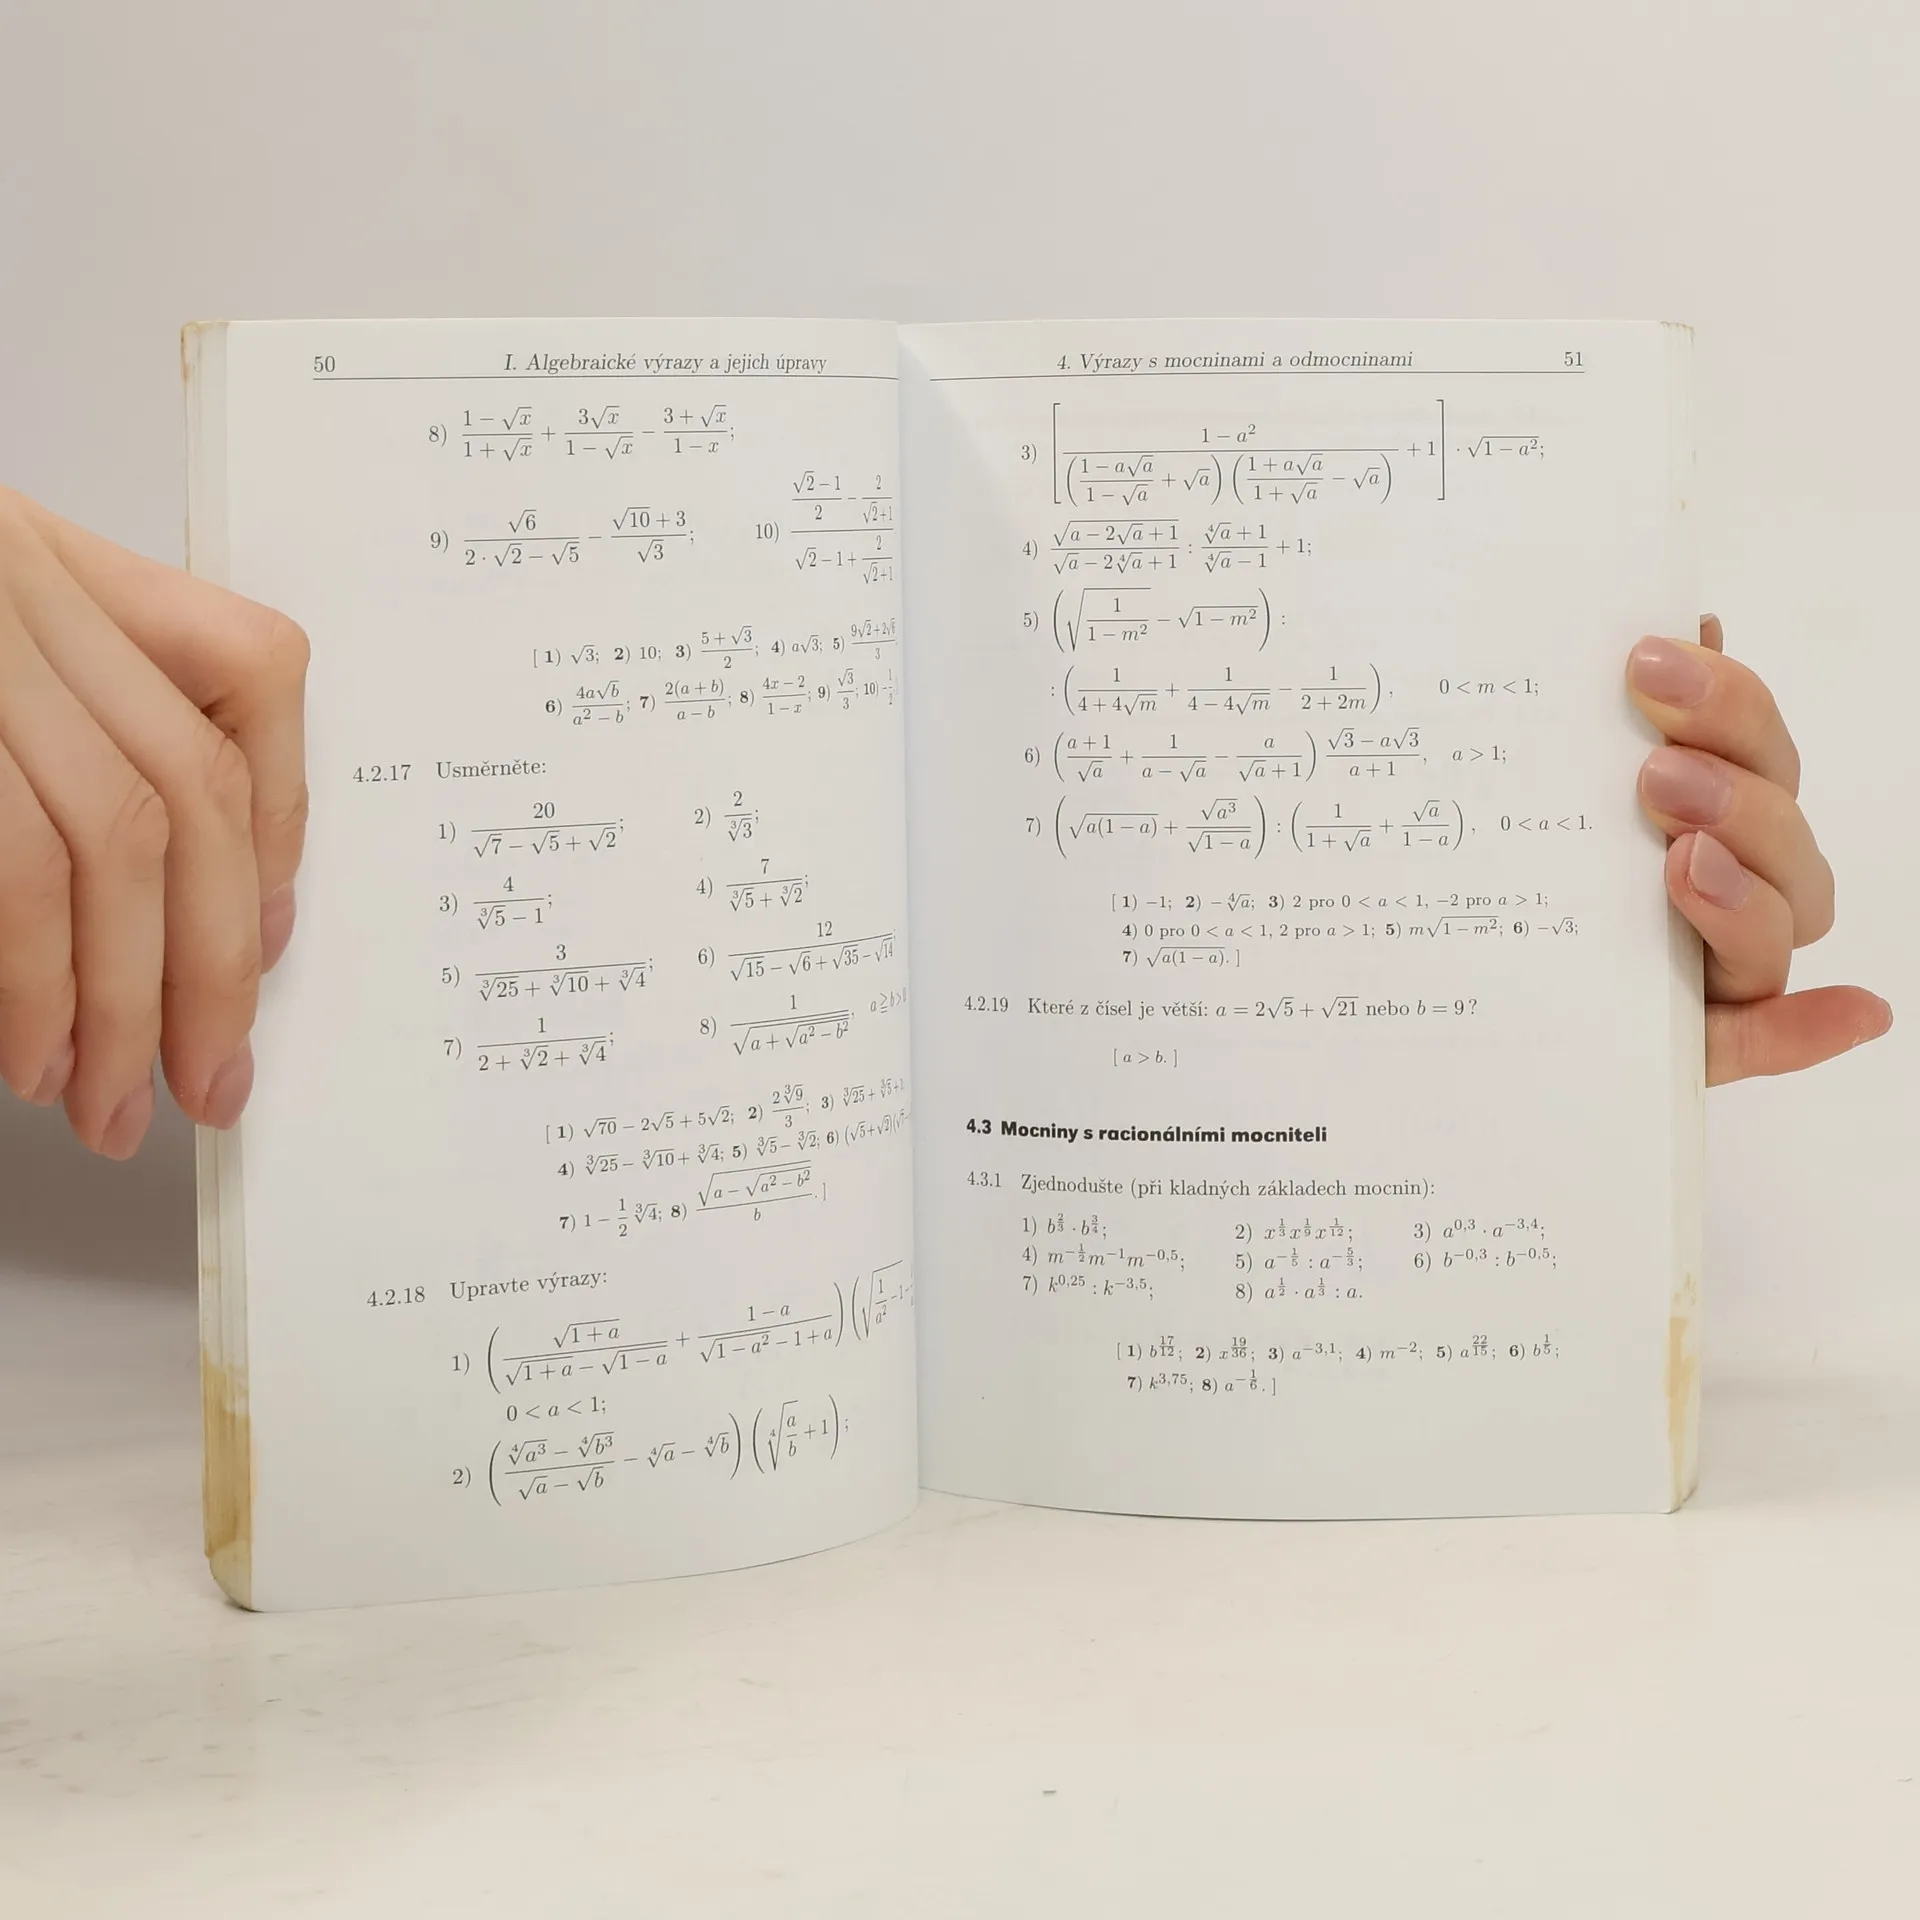 50 I. Algebraické výrazy a jejich úpravy
8) \frac{1-\sqrt{x}}{1+\sqrt{x}} + \frac{3\sqrt{x}}{1-\sqrt{x}} - \frac{3+\sqrt{x}}{1-x};
9) \frac{\sqrt{6}}{2\cdot\sqrt{2}-\sqrt{5}} - \frac{\sqrt{10}+3}{\sqrt{3}}; 10) \frac{\frac{\sqrt{2}-1}{2}-\frac{2}{\sqrt{2}+1}}{\sqrt{2}-1+\frac{2}{\sqrt{2}+1}}
[ 1) √3; 2) 10; 3) \frac{5+\sqrt{3}}{2}; 4) a√3; 5) \frac{9\sqrt{2}+2\sqrt{6}}{3};
6) \frac{4a\sqrt{b}}{a^2-b}; 7) \frac{2(a+b)}{a-b}; 8) \frac{4x-2}{1-x}; 9) \frac{\sqrt{3}}{3}; 10) -\frac{1}{2}
4.2.17 Usměrněte:
1) \frac{20}{\sqrt{7}-\sqrt{5}+\sqrt{2}}; 2) \frac{2}{\sqrt[3]{3}};
3) \frac{4}{\sqrt[3]{5}-1}; 4) \frac{7}{\sqrt[3]{5}+\sqrt[3]{2}};
5) \frac{3}{\sqrt[3]{25}+\sqrt[3]{10}+\sqrt[3]{4}}; 6) \frac{12}{\sqrt{15}-\sqrt{6}+\sqrt{35}-\sqrt{14}};
7) \frac{1}{2+\sqrt[3]{2}+\sqrt[3]{4}}; 8) \frac{1}{\sqrt{a+\sqrt{a^2-b^2}}}, a ≧ b >
[ 1) √70 − 2√5 + 5√2; 2) \frac{2\sqrt[3]{9}}{3}; 3) ∛25 + ∛5 +
4) ∛25 − ∛10 + ∛4; 5) ∛5 − ∛2; 6) (√5+√2)
7) 1 − \frac{1}{2}∛4; 8) \frac{\sqrt{a-\sqrt{a^2-b^2}}}{b}. ]
4.2.18 Upravte výrazy:
1) \left(\frac{\sqrt{1+a}}{\sqrt{1+a}-\sqrt{1-a}} + \frac{1-a}{\sqrt{1-a^2}-1+a}\right)\left(\sqrt{\frac{1}{a^2}-1}-
0 < a < 1;
2) \left(\frac{\sqrt[4]{a^3}-\sqrt[4]{b^3}}{\sqrt{a}-\sqrt{b}} - \sqrt[4]{a} - \sqrt[4]{b}\right)\left(\sqrt[4]{\frac{a}{b}}+1\right);
4. Výrazy s mocninami a odmocninami 51
3) \left[\frac{1-a^2}{\left(\frac{1-a\sqrt{a}}{1-\sqrt{a}}+\sqrt{a}\right)\left(\frac{1+a\sqrt{a}}{1+\sqrt{a}}-\sqrt{a}\right)}+1\right]\cdot\sqrt{1-a^2};
4) \frac{\sqrt{a-2\sqrt{a}+1}}{\sqrt{a}-2\sqrt[4]{a}+1} : \frac{\sqrt[4]{a}+1}{\sqrt[4]{a}-1} + 1;
5) \left(\sqrt{\frac{1}{1-m^2}}-\sqrt{1-m^2}\right) :
: \left(\frac{1}{4+4\sqrt{m}}+\frac{1}{4-4\sqrt{m}}-\frac{1}{2+2m}\right), 0 < m < 1;
6) \left(\frac{a+1}{\sqrt{a}}+\frac{1}{a-\sqrt{a}}-\frac{a}{\sqrt{a}+1}\right)\frac{\sqrt{3}-a\sqrt{3}}{a+1}, a > 1;
7) \left(\sqrt{a(1-a)}+\frac{\sqrt{a^3}}{\sqrt{1-a}}\right) : \left(\frac{1}{1+\sqrt{a}}+\frac{\sqrt{a}}{1-a}\right), 0 < a < 1.
[ 1) −1; 2) −∜a; 3) 2 pro 0 < a < 1, −2 pro a > 1;
4) 0 pro 0 < a < 1, 2 pro a > 1; 5) m\sqrt{1-m^2}; 6) −√3;
7) \sqrt{a(1-a)}. ]
4.2.19 Které z čísel je větší: a = 2√5 + √21 nebo b = 9 ?
[ a > b. ]
4.3 Mocniny s racionálními mocniteli
4.3.1 Zjednodušte (při kladných základech mocnin):
1) b^{\frac{2}{3}} · b^{\frac{3}{4}}; 2) x^{\frac{1}{3}}x^{\frac{1}{9}}x^{\frac{1}{12}}; 3) a^{0,3} · a^{-3,4};
4) m^{-\frac{1}{2}}m^{-1}m^{-0,5}; 5) a^{-\frac{1}{5}} : a^{-\frac{5}{3}}; 6) b^{-0,3} : b^{-0,5};
7) k^{0,25} : k^{-3,5}; 8) a^{\frac{1}{2}} · a^{\frac{1}{3}} : a.
[ 1) b^{\frac{17}{12}}; 2) x^{\frac{19}{36}}; 3) a^{-3,1}; 4) m^{-2}; 5) a^{\frac{22}{15}}; 6) b^{\frac{1}{5}};
7) k^{3,75}; 8) a^{-\frac{1}{6}}. ]